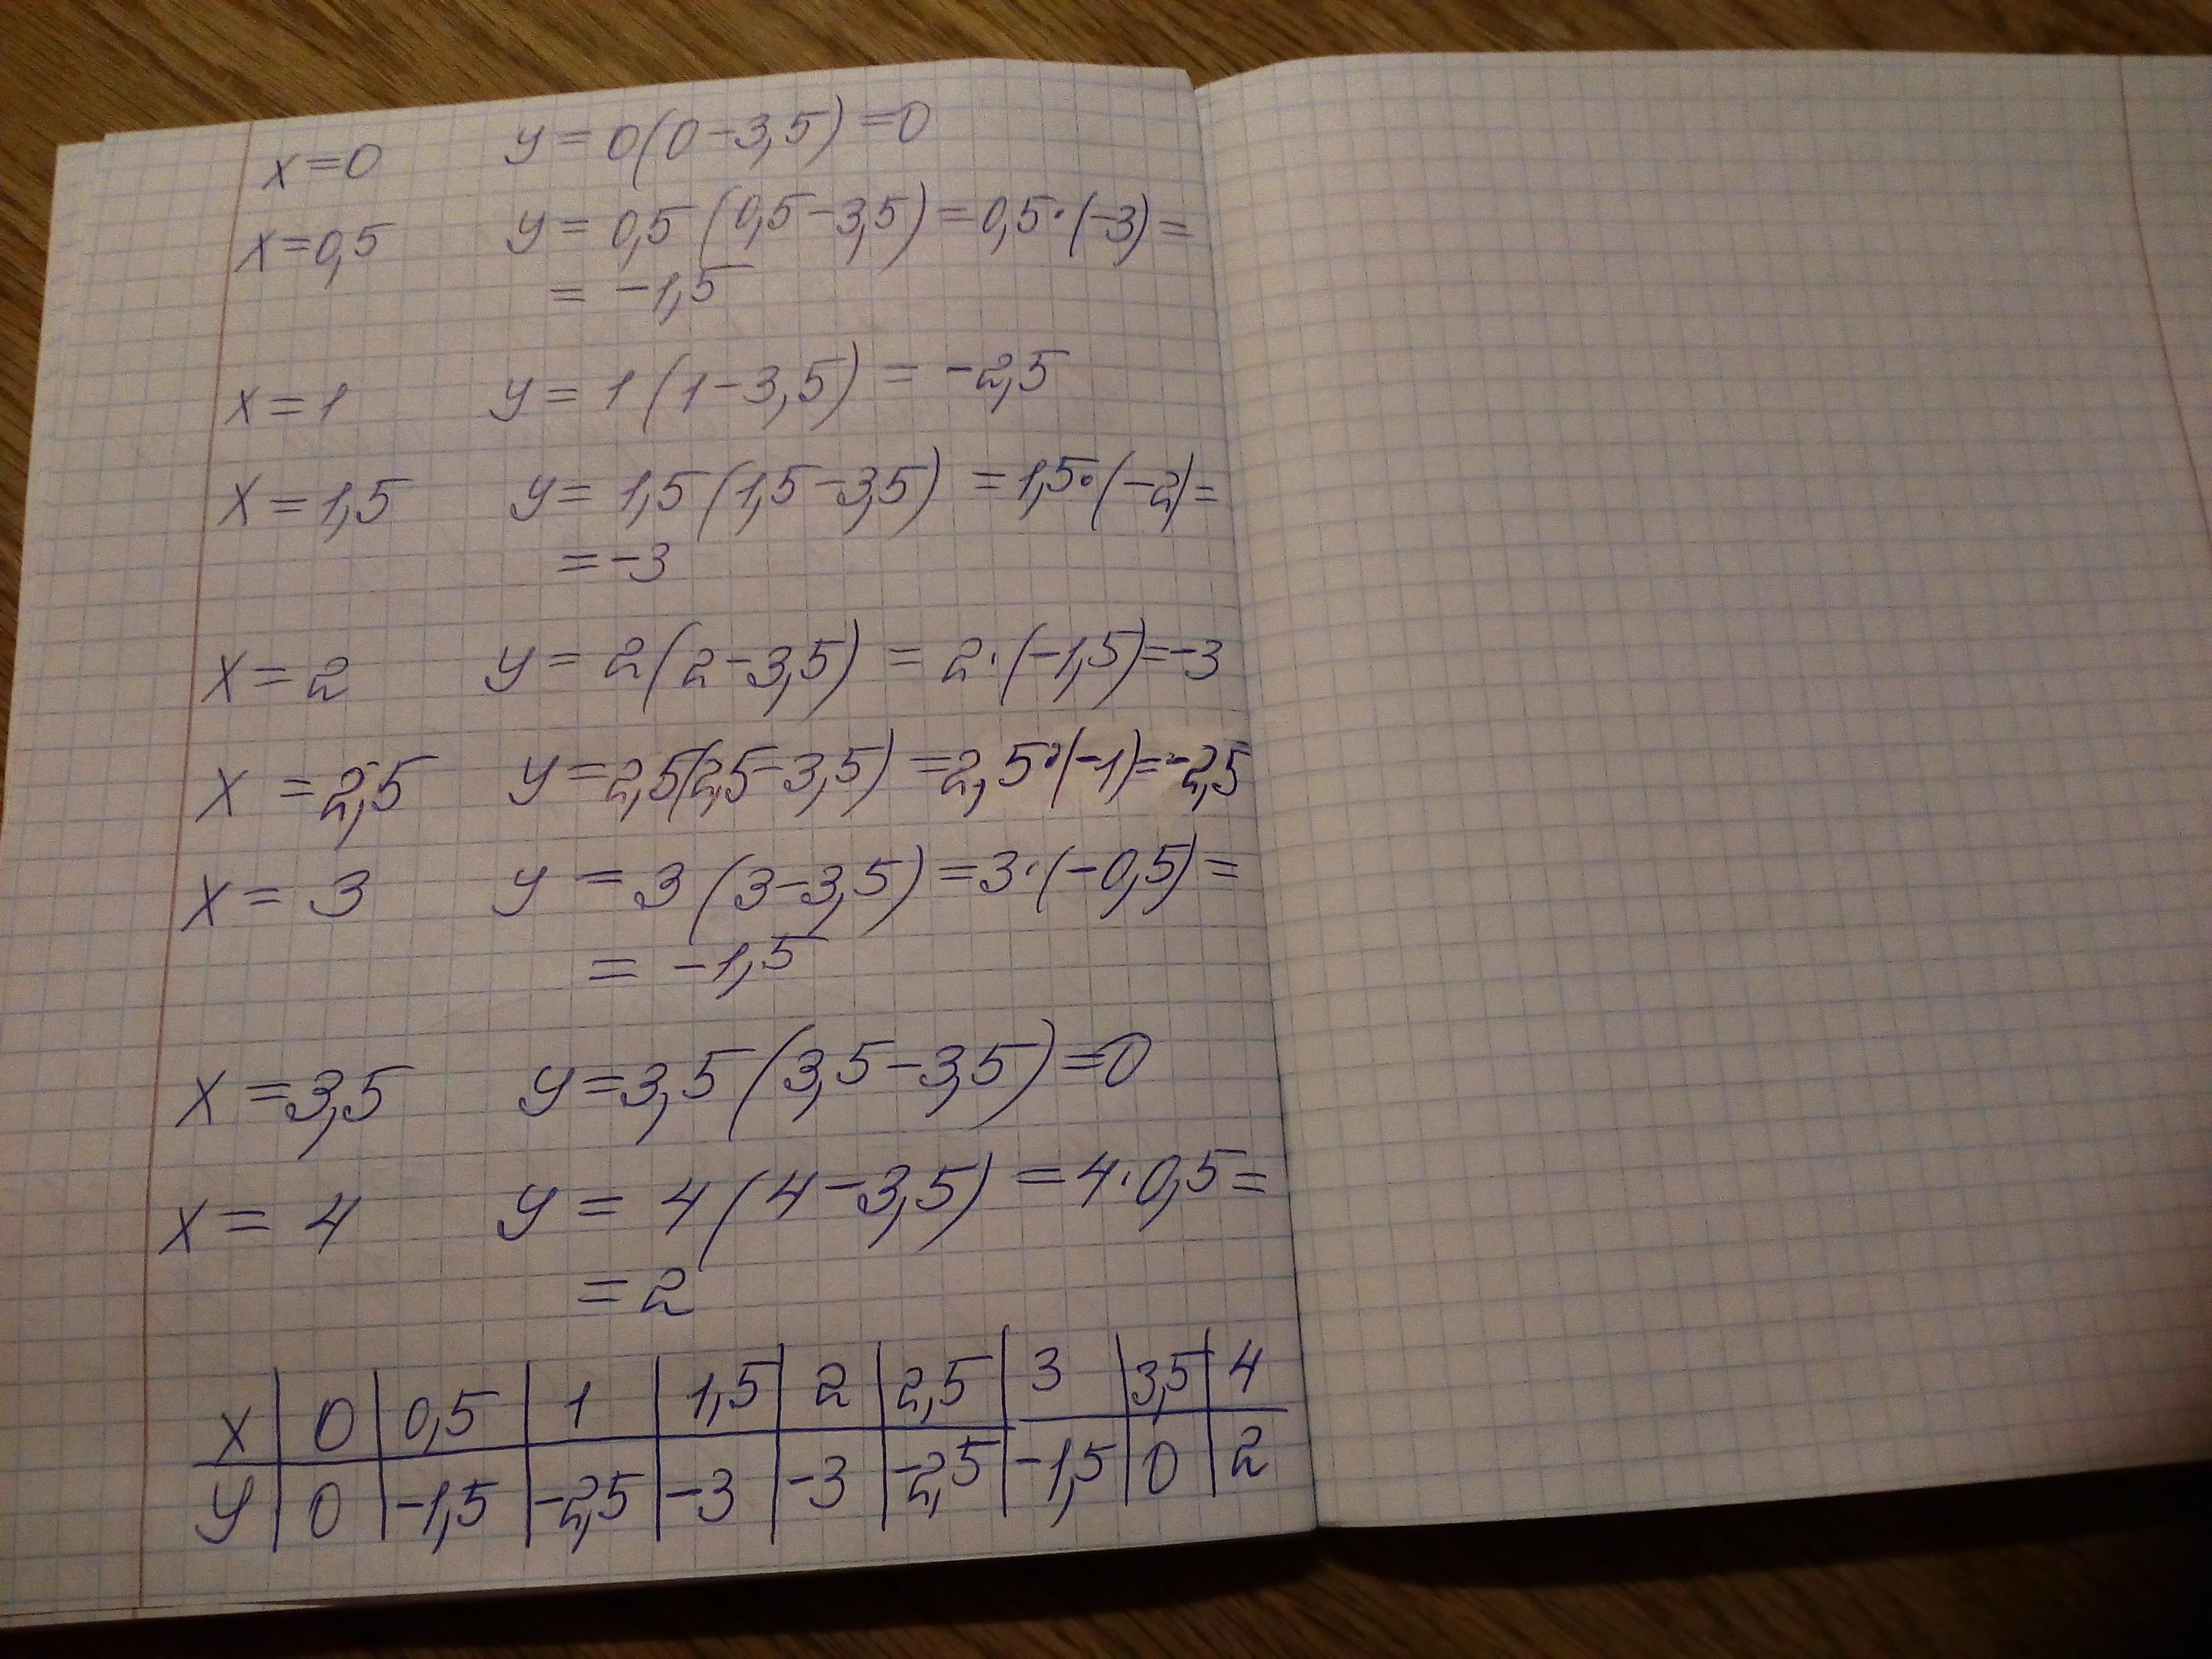 x=0 y=0(0-3,5)=0
x=0,5 y=0,5(0,5-3,5)=0,5·(-3)=
= -1,5
x=1 y=1(1-3,5)= -2,5
x=1,5 y=1,5(1,5-3,5)=1,5·(-2)=
=-3
x=2 y=2(2-3,5)=2·(-1,5)=-3
x=2,5 y=2,5(2,5-3,5)=2,5·(-1)=-2,5
x=3 y=3(3-3,5)=3·(-0,5)=
= -1,5
x=3,5 y=3,5(3,5-3,5)=0
x=4 y=4(4-3,5)=4·0,5=
=2
x | 0 | 0,5 | 1 | 1,5 | 2 | 2,5 | 3 | 3,5 | 4
y | 0 | -1,5 | -2,5 | -3 | -3 | -2,5 | -1,5 | 0 | 2